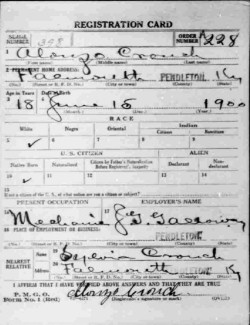 REGISTRATION CARD
SERIAL NUMBER
ORDER NUMBER A228
1 Alonzo Crouch
(First name) (Middle name) (Last name)
2 PERMANENT HOME ADDRESS:
Falmouth PENDLETON Ky
(No.) (Street or R. F. D. No.) (City or town) (County) (State)
Age in Years Date of Birth
18 June 15 1900
RACE
White Negro Oriental Indian
Citizen Noncitizen
5 6 7 8 9
U. S. CITIZEN ALIEN
Native Born Naturalized Citizen by Father's Naturalization Before Registrant's Majority Declarant Non-declarant
10 11 12 13 14
15 If not a citizen of the U. S., of what nation are you a citizen or subject?
PRESENT OCCUPATION EMPLOYER'S NAME
Mechanic
18 PLACE OF EMPLOYMENT OR BUSINESS:
Falmouth PENDLETON Ky
(No.) (Street or R. F. D. No.) (City or town) (County) (State)
NEAREST RELATIVE
Crouch
Falmouth Ky
(No.) (Street or R. F. D. No.) (City or town) (County) (State)
I AFFIRM THAT I HAVE VERIFIED ABOVE ANSWERS AND THAT THEY ARE TRUE
P. M. G. O.
Form No. 1 (Red)
Alonzo Crouch